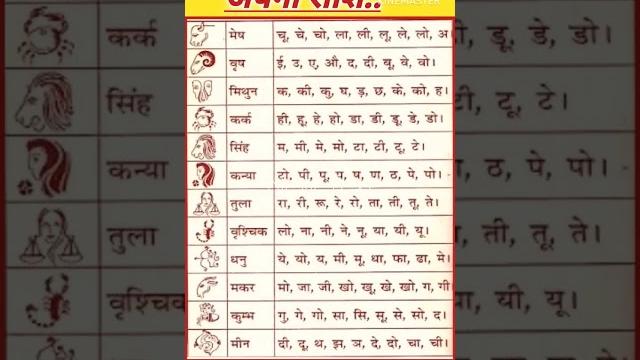 अपनी राशि..
मेष चू, चे, चो, ला, ली, लू, ले, लो, अ
वृष ई, उ, ए, औ, द, दी, वू, वे, वो।
मिथुन क, की, कु, घ, ड़, छ, के, को, ह।
कर्क ही, हू, हे, हो, डा, डी, डू, डे, डो।
सिंह म, मी, मे, मो, टा, टी, टू, टे।
कन्या टो, पी, पू, प, ष, ण, ठ, पे, पो।
तुला रा, री, रू, रे, रो, ता, ती, तू, ते।
वृश्चिक लो, ना, नी, ने, नू, या, यी, यू।
धनु ये, यो, य, मी, मू, धा, फा, ढा, मे।
मकर मो, जा, जी, खो, खू, खे, खो, ग, गी
कुम्भ गु, गे, गो, सा, सि, सू, से, सो, द।
मीन दी, दू, थ, झ, ञ, दे, दो, चा, ची।
कर्क
सिंह
कन्या
तुला
वृश्चिक
डू, डे, डो।
टी, टू, टे।
ठ, पे, पो।
ती, तू, ते।
या, यी, यू।